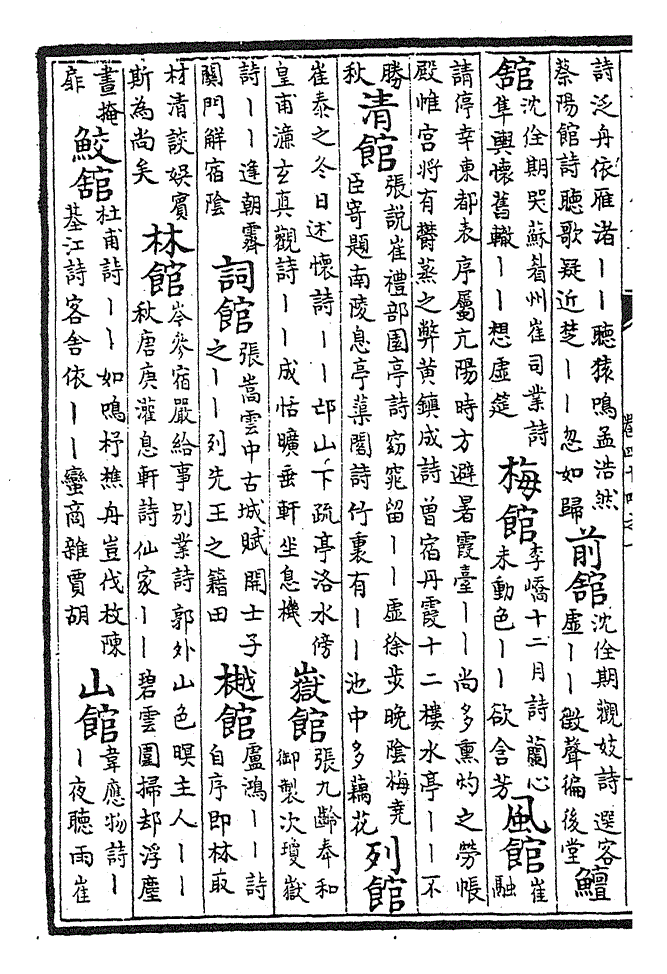 詩泛舟依雁渚丨丨聽猿鳴孟浩然
蔡陽館詩聽歌疑近楚丨丨忽如歸
前館
沈佺期觀妓詩選客
虛丨丨徵聲徧後堂
鱣
館
沈佺期哭蘇眉州崔司業詩
隼輿懷舊轍丨丨想虛筵
梅館
李嶠十二月詩蘭心
未動色丨丨欲含芳
風館
崔
融
請停幸東都表序屬亢陽時方避暑霞臺丨丨尚多熏灼之勞帳
殿惟宮將有欝蒸之弊黄鎮成詩曾宿丹霞十二樓水亭丨丨不
勝
秋
清館
張説崔禮部園亭詩窈窕留丨丨虛徐步晚陰梅堯
臣寄題南陵息亭蕖閣詩竹裏有丨丨池中多藕花
列館
崔泰之冬日述懷詩丨丨邙山下疏亭洛水傍
皇甫濂玄真觀詩丨丨成恬曠垂軒坐息機
嶽館
張九齡奉和
御製次瓊嶽
詩丨丨逢朝霽
關門解宿陰
詞館
張嵩雲中古城賦開士子
之丨丨列先王之籍田
樾館
盧鴻丨丨詩
自序即林取
材清談娛賓
斯為尚矣
林館
岑參宿嚴給事別業詩郭外山色暝主人丨丨
秋唐庚灌息軒詩仙家丨丨碧雲圍掃却浮塵
晝掩
扉
鮫館
杜甫詩丨丨如鳴杼樵舟豈伐枚陳
棊江詩客舍依丨丨蠻商雜賈胡
山館
韋應物詩丨
丨夜聽雨崔